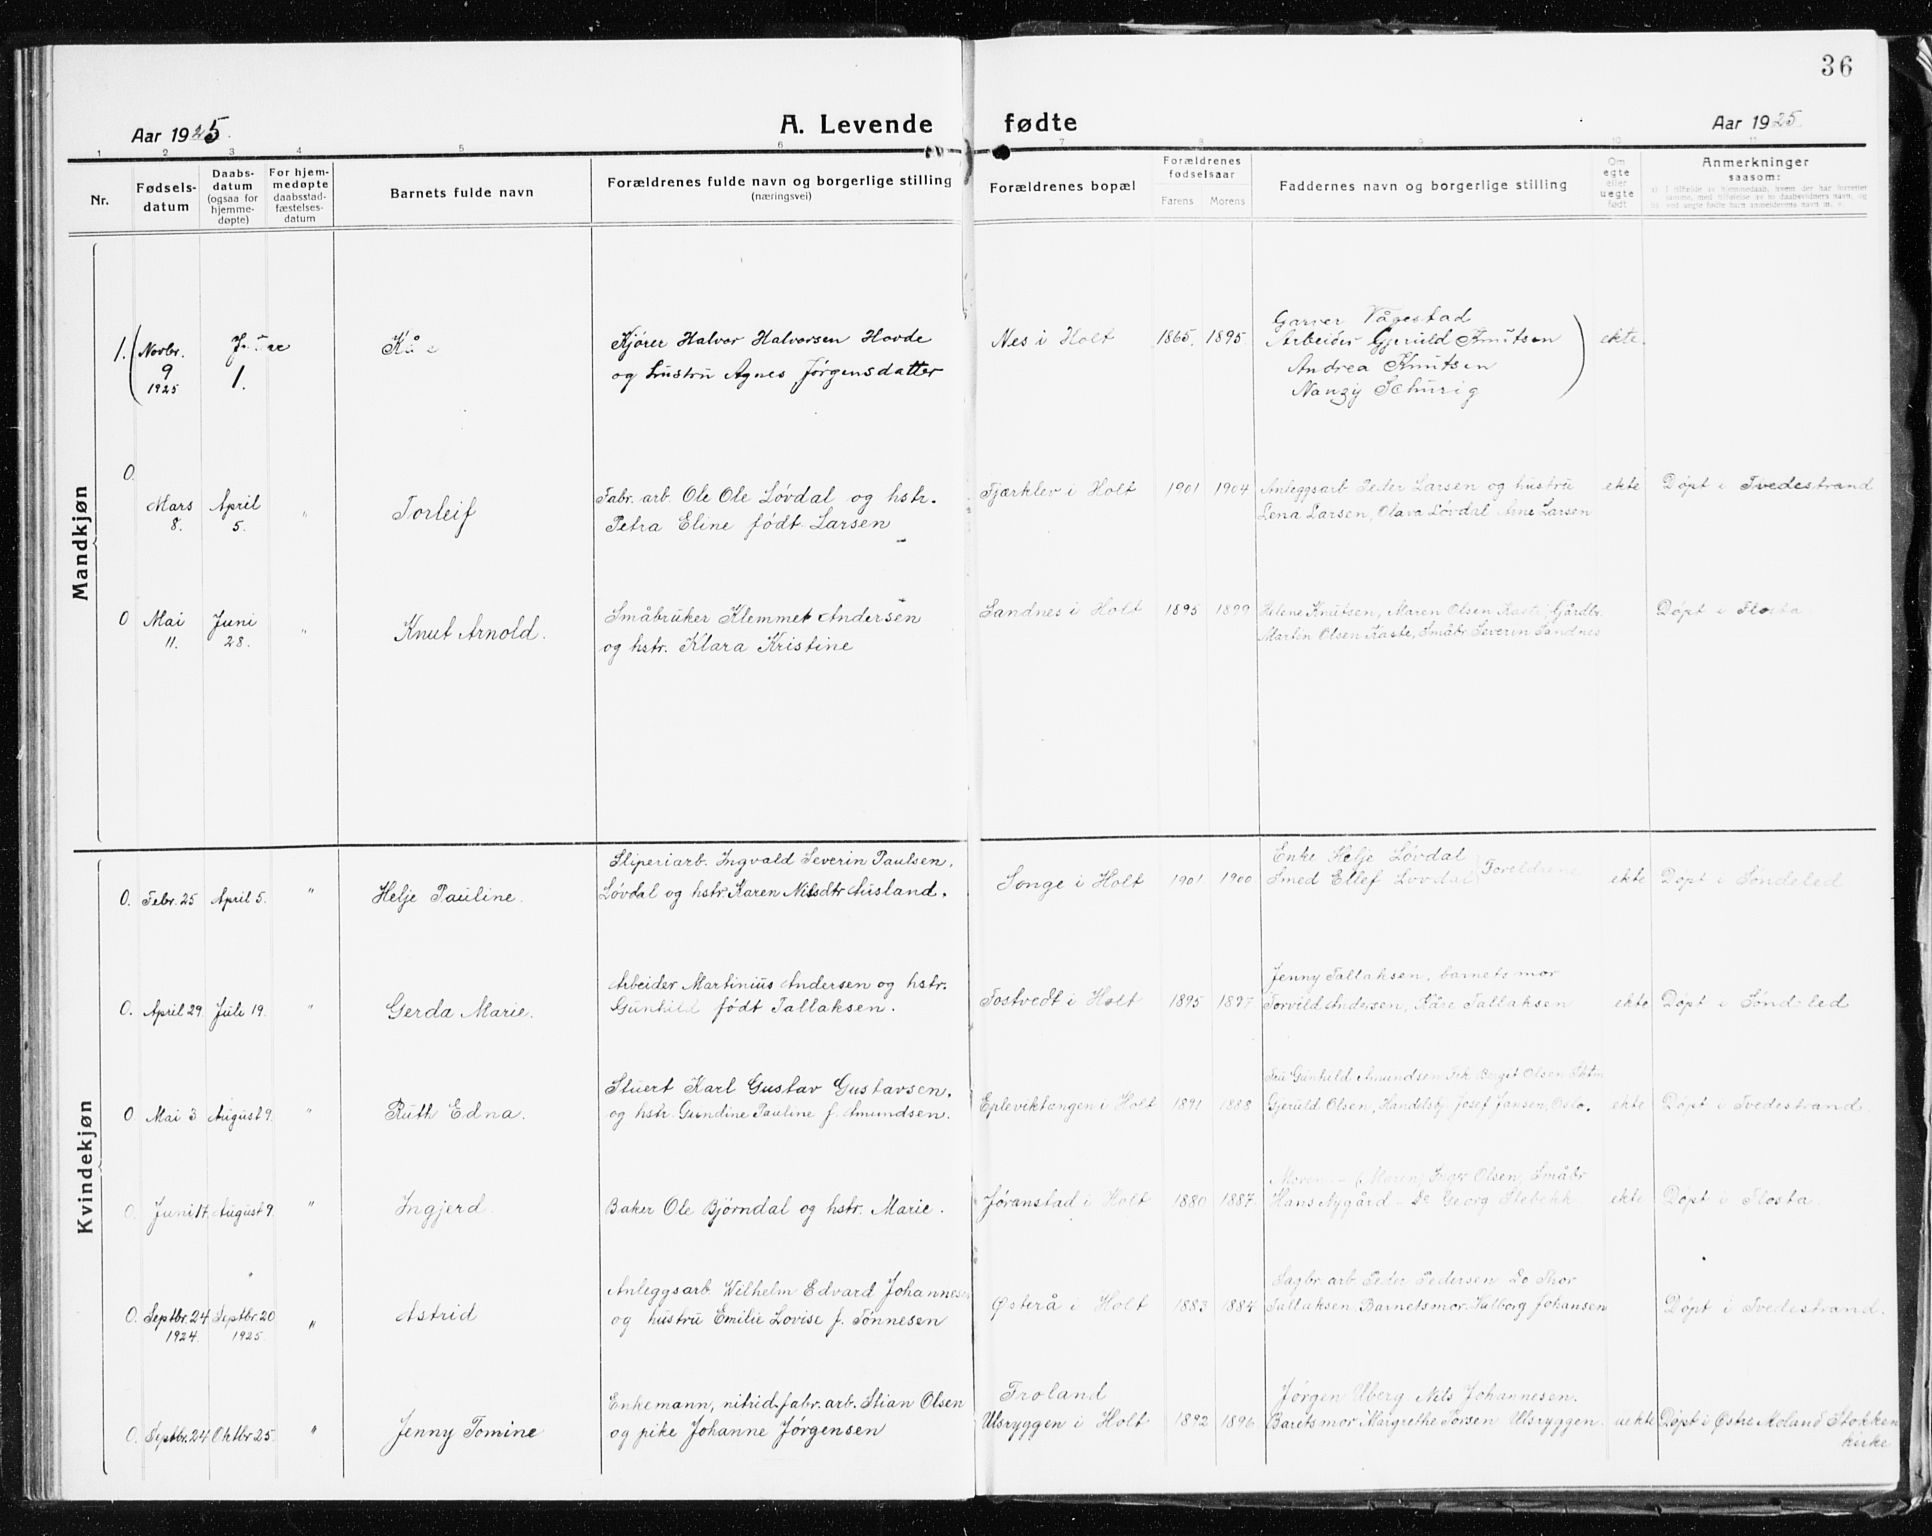 36
Aar 1925.
A. Levende fødte
Aar 1925
1 2 3 4 5 6 7 8 9 10 11
Nr.
Fødsels-
datum
Daabs-
datum
(ogsaa for
hjemme-
døpte)
For hjem-
medøpte
daabsstad-
fæstelses-
datum
Barnets fulde navn
Forældrenes fulde navn og borgerlige stilling
(næringsvei)
Forældrenes bopæl
Forældrenes
fødselsaar
Farens Morens
Faddernes navn og borgerlige stilling
Om
egte
eller
uegte
født
Anmerkninger
saasom:
a) I tilfælde av hjemmedaab, hvem der har forrettet
samme, med tilføielse av to daabsvidners navn, og
b) ved uegte fødte barn anmelderens navn m. v.
Mandkjøn
1. Novbr. 9 1925
1.
Kjører Halvor Halvorsen Hovde
og hustru Agnes Jørgensdatter
Nes i Holt 1865. 1895.
Garver Vågestad
Arbeider Gjeruld Knutsen
Andrea Knutsen
Nanzy Schurig
ekte.
0.
Mars 8. April 5. " Torleif
Fabr. arb. Ole Ole Løvdal og hstr.
Petra Eline født Larsen
Fjærklev i Holt 1901 1904
Anleggsarb Peder Larsen og hustru
Lena Larsen, Olava Løvdal Arne Larsen
ekte Døpt i Tvedestrand
0 Mai 11. Juni 28. " Knut Arnold.
Småbruker Klemmet Andersen
og hstr. Klara Kristine
Sandnes i Holt 1895 1899
Helene Knutsen, Maren Olsen Kaste Gårdbr.
Martin Olsen Kaste, Småbr. Severin Sandnes
Døpt i Flosta.
Kvindekjøn
0. Febr. 25 April 5. " Helje Pauline.
Sliperiarb. Ingvald Severin Paulsen,
Løvdal og hstr. Karen Nilsdtr Ausland.
Songe i Holt 1901. 1900
Enke Helje Løvdal
Smed Ellef Løvdal Foreldrene
ekte Døpt i Søndeled
0. April 29. Juli 19. " Gerda Marie.
Arbeider Martinius Andersen og hstr.
Gunhild født Tallaksen.
Fostvedt i Holt 1895 1897
Jenny Tallaksen, barnets mor
Torvild Andersen, Kåre Tallaksen
ekte Døpt i Søndeled
0 Mai 3 August 9. " Ruth Edna.
Stuert Karl Gustav Gustavsen.
og hstr. Gundine Pauline f. Amundsen.
Epleviktangen i Holt 1891 1888
Fru Gunhild Amundsen Frk. Borgit Olsen
Gjeruld Olsen, Handelsbj. Josef Jansen, Oslo.
ekte Døpt i Tvedestrand.
0. Juni 17. August 9. " Ingjerd.
Baker Ole Bjørndal og hstr. Marie.
Jøranstad i Holt 1880 1887.
Moren – (Maren) Inger Olsen, Småbr
Hans Nygård – Do Georg Stebekk
ekte Døpt i Flosta.
0. Septbr. 24 1924. Septbr. 20 1925. " Astrid
Anleggsarb. Wilhelm Edvard Johannesen
og hustru Emilie Lovise f. Tønnesen
Østerå i Holt 1883 1884
Sagbr. arb. Peder Pedersen Do Thor
Tallaksen Barnetsmor. Valborg Johansen
Døpt i Tvedestrand.
0. Septbr. 24 Oktbr 25. " Jenny Tomine
Enkemann, nitrid. fabr. arb. Stian Olsen
og pike Johanne Jørgensen
Froland
Ulsryggen i Holt 1892 1896
Jørgen Uberg Nils Johannesen.
Baretsmor Margrethe Torsen Ulsryggen.
uekte Døpt i Østre Moland Stokken
kirke